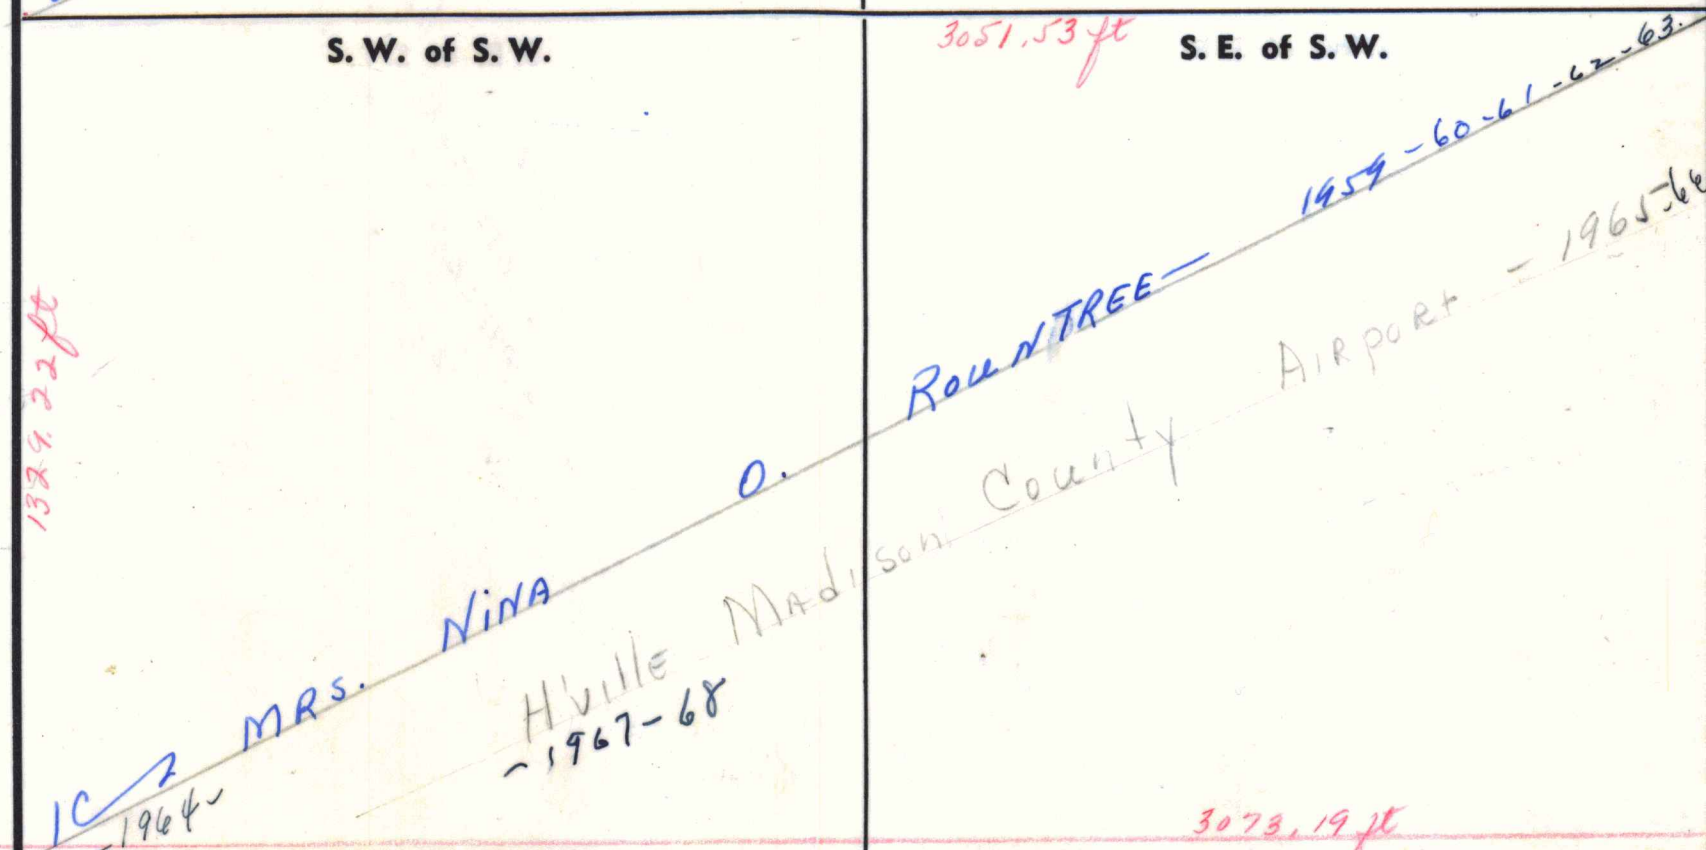 S. W. of S. W.
3051.53 ft
S. E. of S. W.
1329.22 ft
1C MRS. NiNA O. RouNTREE — 1959-60-61-62-63.
1964
H'ville Madison County Airport - 1965-66
- 1967-68
3073.19 ft